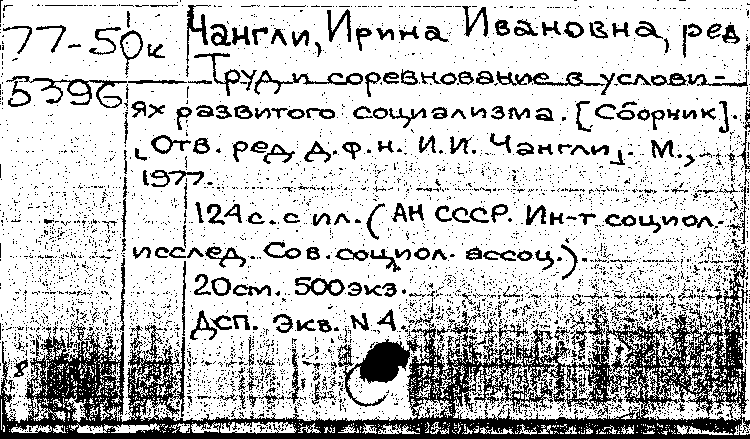 77-50к Чангли, Ирина Ивановна, ред
5396 Труд и соревнование в услови-
ях развитого социализма. [Сборник].
[Отв. ред. д.ф.н. И.И. Чангли]. М.,
1977.
124с. с ил. (АН СССР. Ин-т социол.
исслед. Сов. социол. ассоц.).
20см. 500экз.
Дсп. Экз. N 4.
8